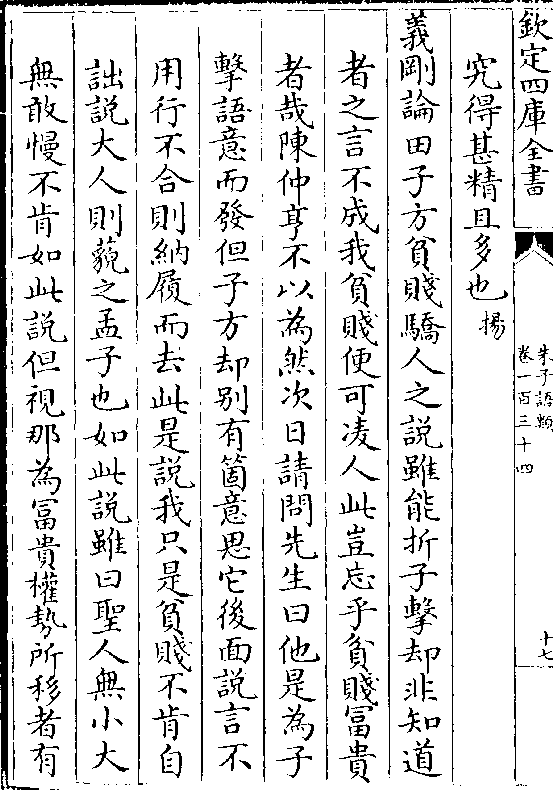 欽定四庫全書
朱子語類
卷一百三十四
十七
究得甚精且多也揚
義剛論田子方貧賤驕人之說雖能折子擊却非知道
者之言不成我貧賤便可凌人此豈忘乎貧賤冨貴
者哉陳仲亨不以為然次日請問先生曰他是為子
擊語意而發但子方却别有箇意思它後面說言不
用行不合則納履而去此是說我只是貧賤不肯自
詘說大人則藐之孟子也如此說雖曰聖人無小大
無敢慢不肯如此說但視那為冨貴權勢所移者有